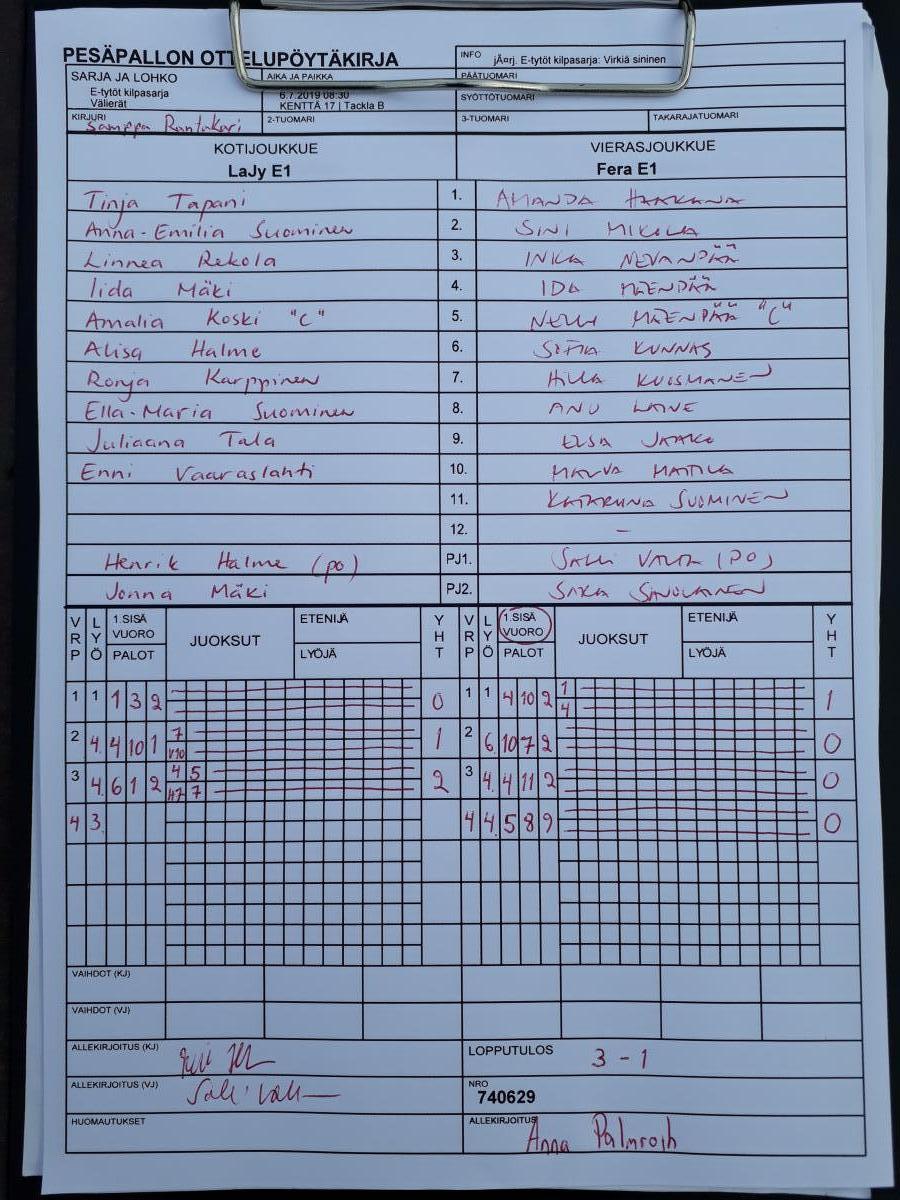 PESÄPALLON OTTELUPÖYTÄKIRJA
INFO jÄ¤rj. E-tytöt kilpasarja: Virkiä sininen
SARJA JA LOHKO
E-tytöt kilpasarja
Välierät
AIKA JA PAIKKA
6.7.2019 08:30
KENTTÄ 17 | Tackla B
PÄÄTUOMARI
SYÖTTÖTUOMARI
KIRJURI Samppa Rantakari
2-TUOMARI
3-TUOMARI
TAKARAJATUOMARI
KOTIJOUKKUE
LaJy E1
VIERASJOUKKUE
Fera E1
Tinja Tapani 1. AMANDA
Anna-Emilia Suominen 2. SINI MIKOLA
Linnea Rekola 3. INKA NEVANPÄÄ
Iida Mäki 4. IDA MÄENPÄÄ
Amalia Koski "C" 5. NELLI MÄENPÄÄ "C"
Alisa Halme 6. SOFIA KUNNAS
Ronja Karppinen 7. HILLA KUOSMANEN
Ella-Maria Suominen 8. ANU LAINE
Juliaana Tala 9. ELSA JAAKO
Enni Vaaraslahti 10. MALVA MATTILA
11. KATARIINA SUOMINEN
12. –
Henrik Halme (po) PJ1. SALLI VALLI (PO)
Jonna Mäki PJ2. SAKU
VRP LYÖ 1.SISÄ VUORO PALOT JUOKSUT ETENIJÄ LYÖJÄ YHT VRP LYÖ 1.SISÄ VUORO PALOT JUOKSUT ETENIJÄ LYÖJÄ YHT
1 1 1 3 2 0 1 1 4 10 2 1 4 1
2 4. 4 10 1 7 V10 1 2 6. 10 7 2 0
3 4. 6 1 2 4 5 H7 7 2 3 4. 4 11 2 0
4 3. 4 4. 5 8 9 0
VAIHDOT (KJ)
VAIHDOT (VJ)
ALLEKIRJOITUS (KJ)
LOPPUTULOS 3 - 1
ALLEKIRJOITUS (VJ)
NRO
740629
HUOMAUTUKSET
ALLEKIRJOITUS Anna Palmroth